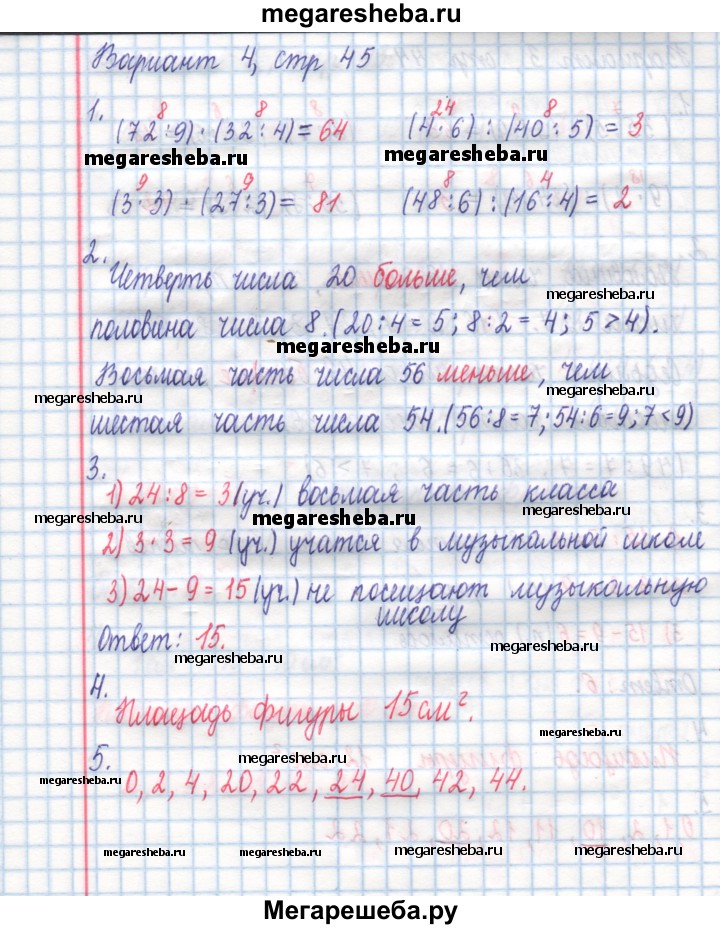 megaresheba.ru
Вариант 4, стр 45
1. (72:9)·(32:4)=64 (4·6):(40:5)=3
8 8 24 8
megaresheba.ru megaresheba.ru
9 9 8 4
(3·3)·(27:3)=81 (48:6):(16:4)=2
2.
Четверть числа 20 больше, чем
megaresheba.ru
половина числа 8.(20:4=5; 8:2=4; 5>4).
megaresheba.ru
Восьмая часть числа 56 меньше, чем
megaresheba.ru megaresheba.ru
шестая часть числа 54.(56:8=7; 54:6=9; 7<9)
3.
1) 24:8=3(уч.) восьмая часть класса
megaresheba.ru megaresheba.ru megaresheba.ru
2) 3·3=9(уч.) учатся в музыкальной школе
3) 24-9=15(уч.) не посещают музыкальную
школу
Ответ: 15.
megaresheba.ru megaresheba.ru
4.
Площадь фигуры 15см².
5.
megaresheba.ru
0, 2, 4, 20, 22, 24, 40, 42, 44.
megaresheba.ru megaresheba.ru
megaresheba.ru megaresheba.ru megaresheba.ru megaresheba.ru
Мегарешеба.ру